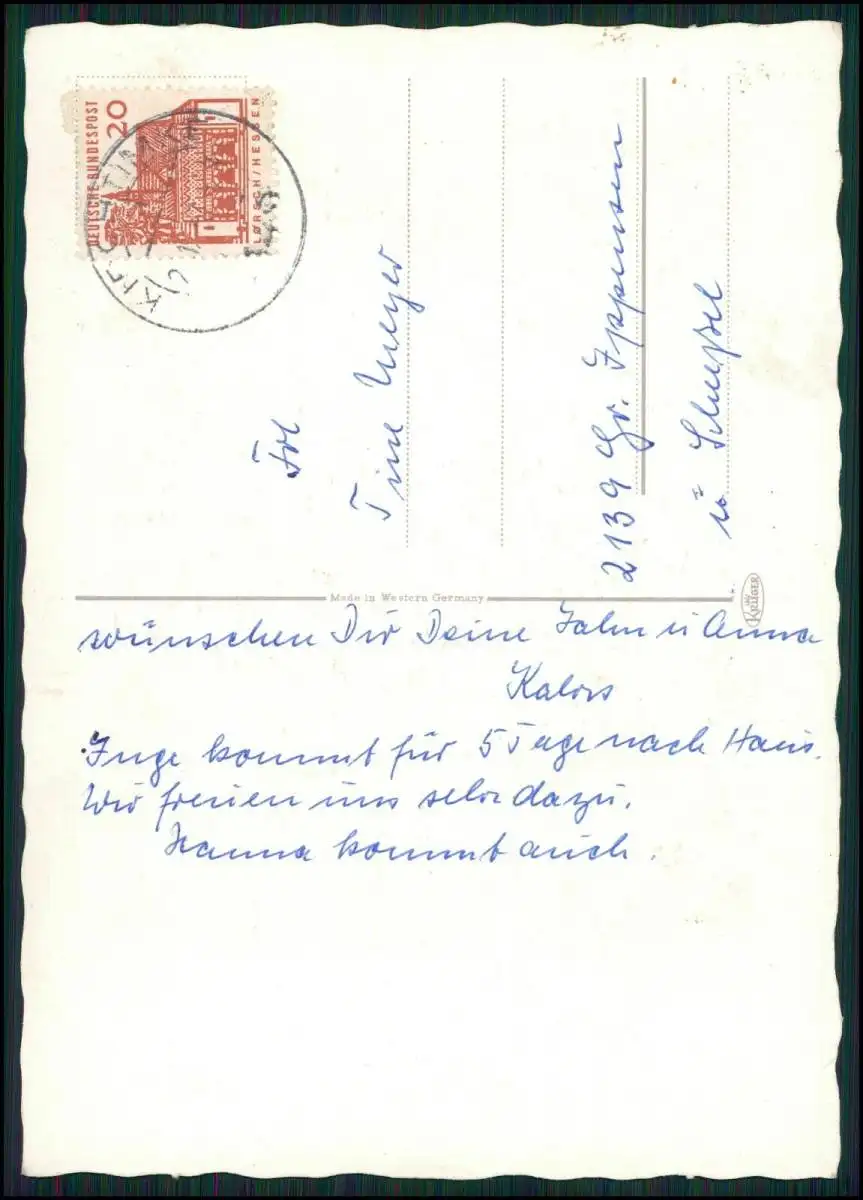 DEUTSCHE BUNDESPOST
20
LORSCH/HESSEN
Frl
Tine Meyer
2139 Gr. Ippensen
ü Scheeßel
Made in Western Germany
KRÜGER
wünschen Dir Deine Jahn u Anna
Inge kommt für 5 Tage nach Haus.
Wir freuen uns sehr dazu.
Hanna kommt auch.